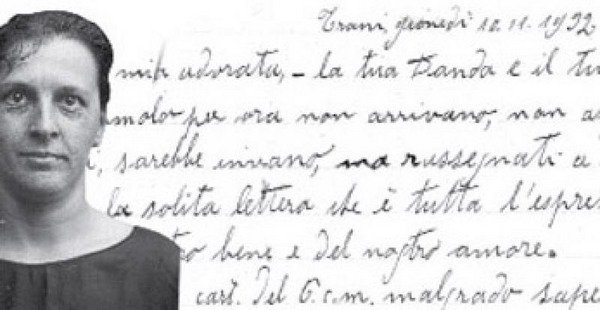 Trani, giovedì 10.11.1932
mia adorata, – la tua e il tu
molo per ora non arrivano, non a
i, sarebbe invano, ma rassegnati a
la solita lettera che è tutta l'espre
tro bene e del nostro amore.
cart. del 6.c.m. malgrado sape